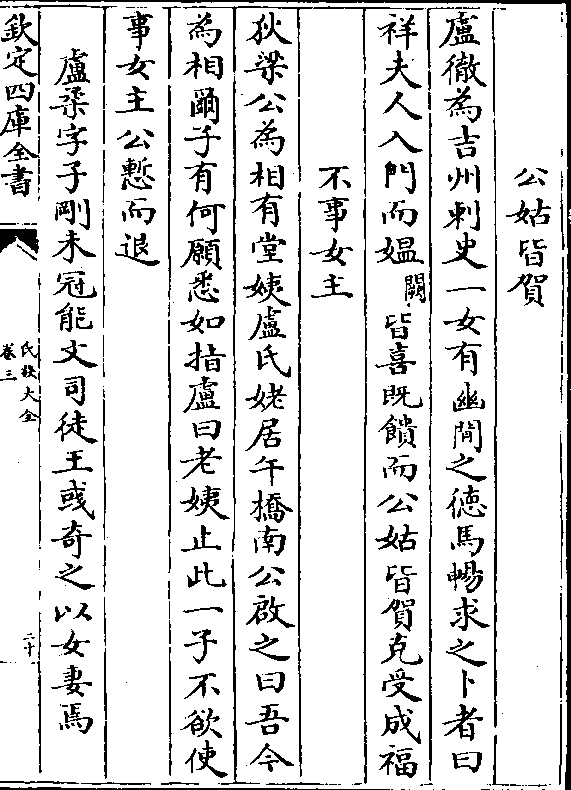 公姑皆賀
盧徹為吉州刺史一女有幽閒之徳馬暢求之卜者曰
祥夫人入門而媪闕皆喜既饋而公姑皆賀克受成福
不事女主
狄梁公為相有堂姨盧氏姥居午橋南公啟之曰吾今
為相爾子有何願悉如指盧曰老姨止此一子不欲使
事女主公慙而退
盧柔字子剛未冠能文司徒王彧奇之以女妻焉
欽定四庫全書
氏族大全
卷三
二十